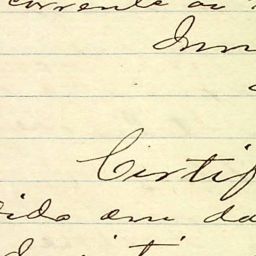 corrente ou
Inn
Certif
vido em da